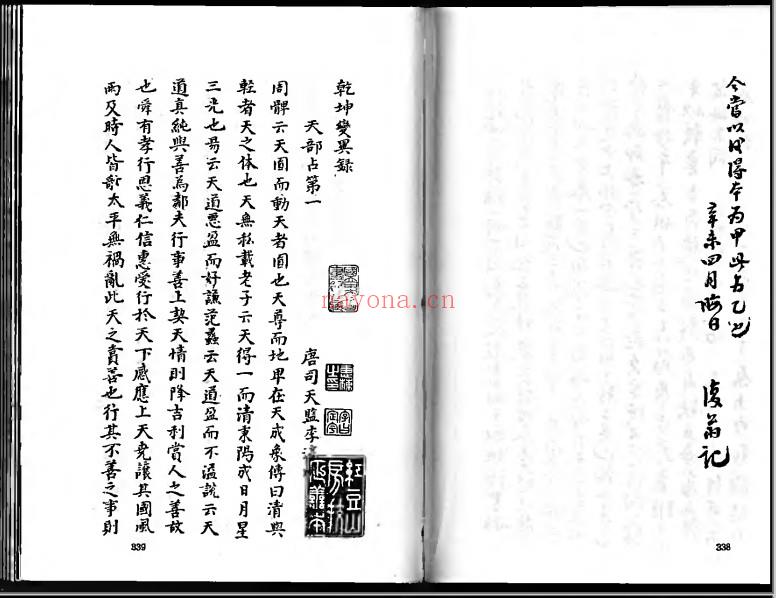 今當以照得本為甲此為乙也
辛未四月晦日
復翁記
338
乾坤變異錄
天部占第一
唐司天監李淳
周髀云天圓而動天者圓也天尊而地卑在天成象傳曰清與
輊者天之体也天無私載老子云天得一而清東陽成日月星
三光也易云天道惡盈而好謙范蠡云天道盈而不溢說云天
道真純與善為鄰夫行事善上契天情則降吉利賞人之善故
也舜有孝行思義仁信惠愛行於天下感應上天堯讓其國風
雨及時人皆歌太平無禍亂此天之賞善也行其不善之事則
紅豆山房校正善本
339
nayona.cn